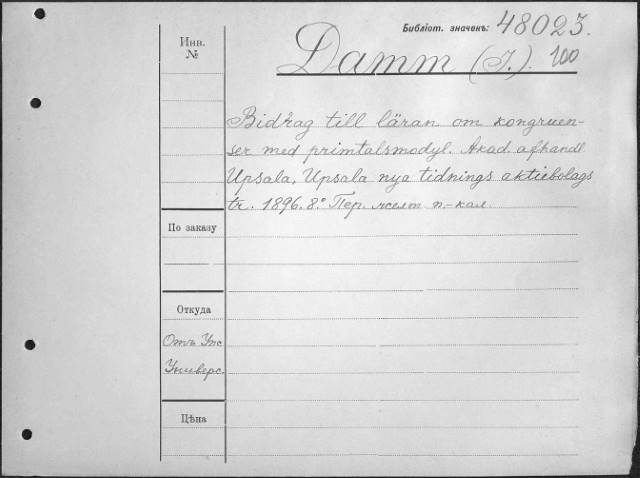 Библіот. значекъ: 48023.
Инв.
№
Damm (I.). 100
Bidrag till läran om kongruen-
ser med primtalsmodyl. Akad. afhandl.
Upsala, Upsala nya tidnings aktiebolags
tr. 1896. 8.º Пер. желт п.-кал.
По заказу
Откуда
Отъ Упс
Универс.
Цѣна